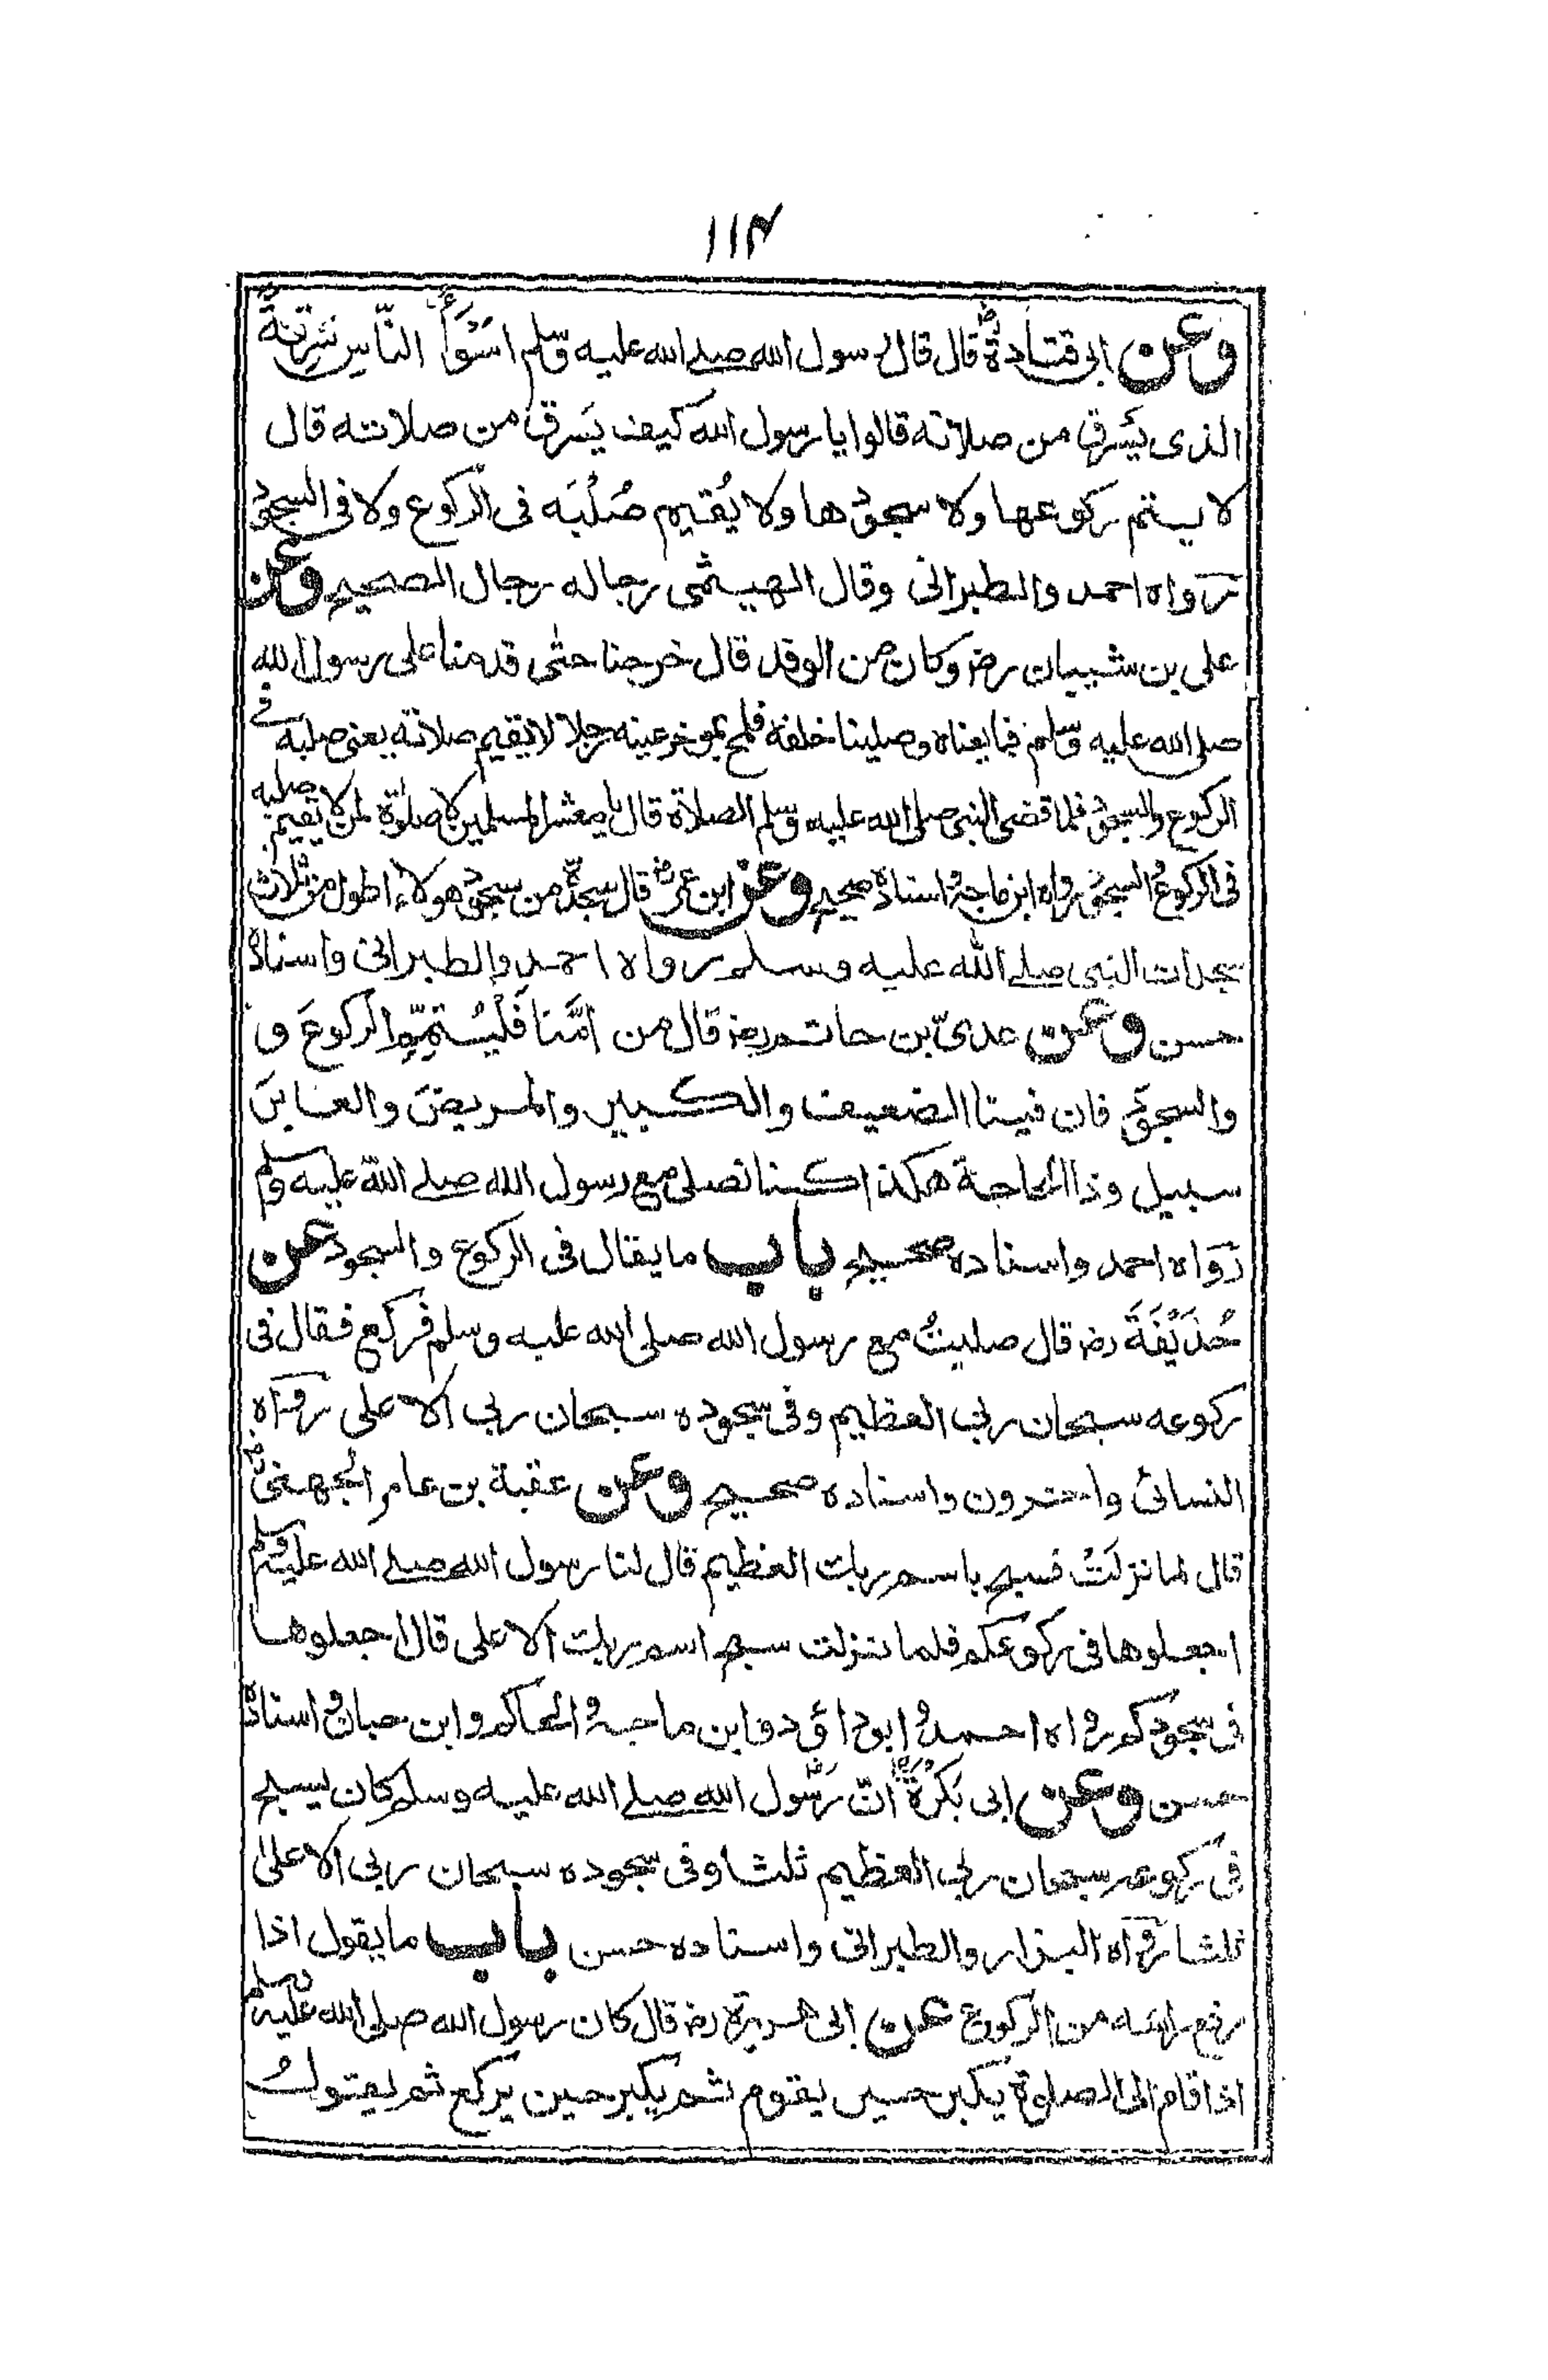 ١١٤
وعن ابى قتادةؓ قال قال رسول الله صلے الله عليه وسلم اَسْوَأُ النّاسِ سَرِقَةً
الذى يَسْرِق من صلاته قالوا يا رسول الله كيف يَسرق من صلاته قال
لا يتم ركوعها ولا سجودها ولا يُقيم صُلْبَه فى الرّكوع ولا فى السجود
رَواه احمد والطبرانى وقال الهيثمى رجاله رجال الصحيح وعن
على بن شيبان رض وكان من الوفد قال خرجنا حتى قدمنا على رسول الله
صلى الله عليه وسلم فبايعناه وصلينا خلفه فلمح بموخر عينه رجلا لا يقيم صلاته يعنى صلبه فے
الركوع والسجود فلما قضى النبى صلى الله عليه وسلم الصلاة قال يا معشر المسلمين لا صلوٰة لمن لا يقيم صلبه
فى الركوع والسجود رواه ابن ماجة واسناده صحيح وعن ابن عمرؓ قال سجدة من سجود هولاء اطول من ثلاث
سجدات النبى صلے الله عليه وسلم رواه احمد والطبرانى واسناده
حسن وعن عدىّ بن حاتم رض قال من اَمَّنا فَلْيُتِمِّ الركوعَ و
والسجودَ فان فينا الضعيف والكبير والمريضَ والعابرَ
سبيل وذا الحاجة هكذا كنا نصلى مع رسول الله صلے الله عليه وسلم
رَوَاه احمد واسناده صحيح باب ما يقال فى الركوع والسجود عن
حُذَيْفَةَ رض قال صليتُ مع رسول الله صلى الله عليه وسلم فركع فقال فى
ركوعه سبحان ربى العظيم وفى سجوده سبحان ربى الاعلى رواه
النسائى واٰخرون واسناده صحيح وعن عقبة بن عامر الجهنىؓ
قال لما نزلَتْ فسبح باسم ربك العظيم قال لنا رسول الله صلے الله عليه وسلم
اجعلوها فى ركوعكم فلما نزلت سبح اسم ربك الاعلى قال اجعلوها
فى سجودكم رواه احمد وابو داؤد وابن ماجه والحاكم وابن حبان واسناده
حسن وعن ابى بَكْرَةَؓ انّ رَسُول الله صلے الله عليه وسلم كان يسبح
فى ركوعه سبحان ربى العظيم ثلثا وفى سجوده سبحان ربى الاعلىٰ
ثلثا رواه البزار والطبرانى واسناده حسن باب ما يقول اذا
رفع راسه من الركوع عن ابى هريرة رض قال كان رسول الله صلى الله عليه وسلم
اذا قام الى الصلوة يكبر حين يقوم ثم يكبر حين يركع ثم يقولُ